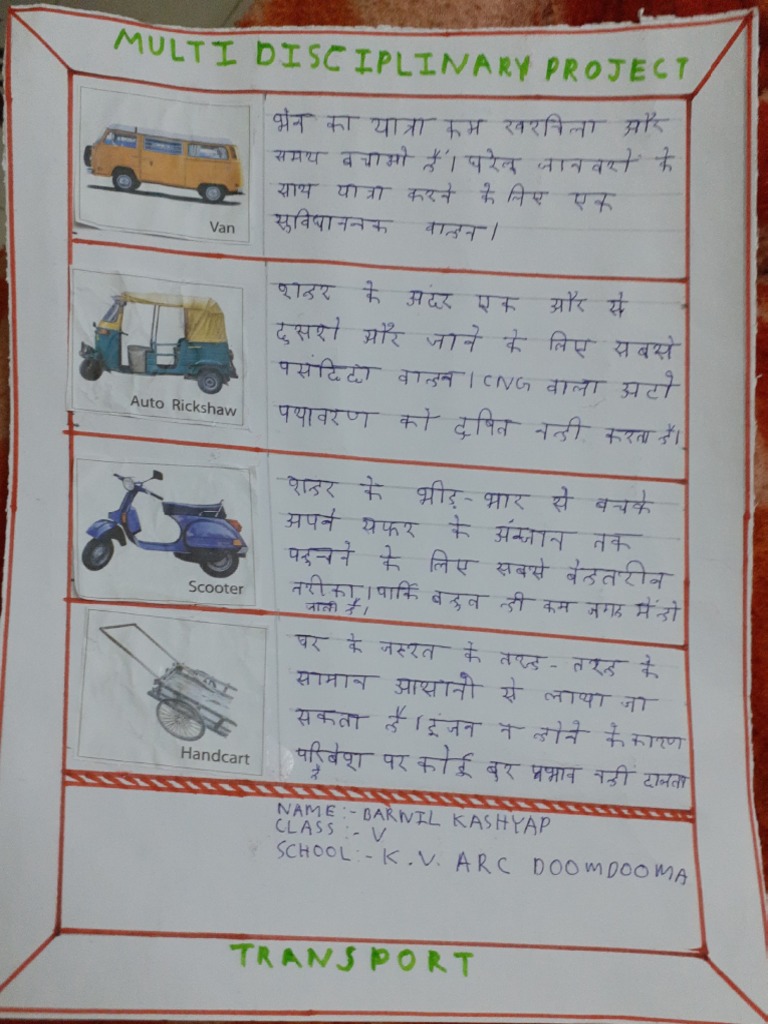 MULTI DISCIPLINARY PROJECT
भेन का यात्रा कम खरचिला और
समय बचामो हैं। घरेलु जानवरों के
साथ यात्रा करने के लिए एक
सुविधाजनक वाहन।
Van
शहर के अंदर एक और से
दुसरो और जाने के लिए सबसे
पसंदिदा वाहन। CNG वाला अटो
पयावरण को दुषित नही करता है।
Auto Rickshaw
शहर के भीड़-भार से बचके
अपने सफर के अंन्जान तक
पहचने के लिए सबसे बेहतरीन
तरीका। पार्कि बहुत ही कम जगह में हो
जाती है।
Scooter
घर के जरुरत के तरह-तरह के
सामान आसानी से लाया जा
सकता है। इंजन न होने के कारण
परिबेश पर कोई बुर प्रभाव नही डालता
है
Handcart
NAME:- BARNIL KASHYAP
CLASS:- V
SCHOOL:- K.V. ARC DOOMDOOMA
TRANSPORT